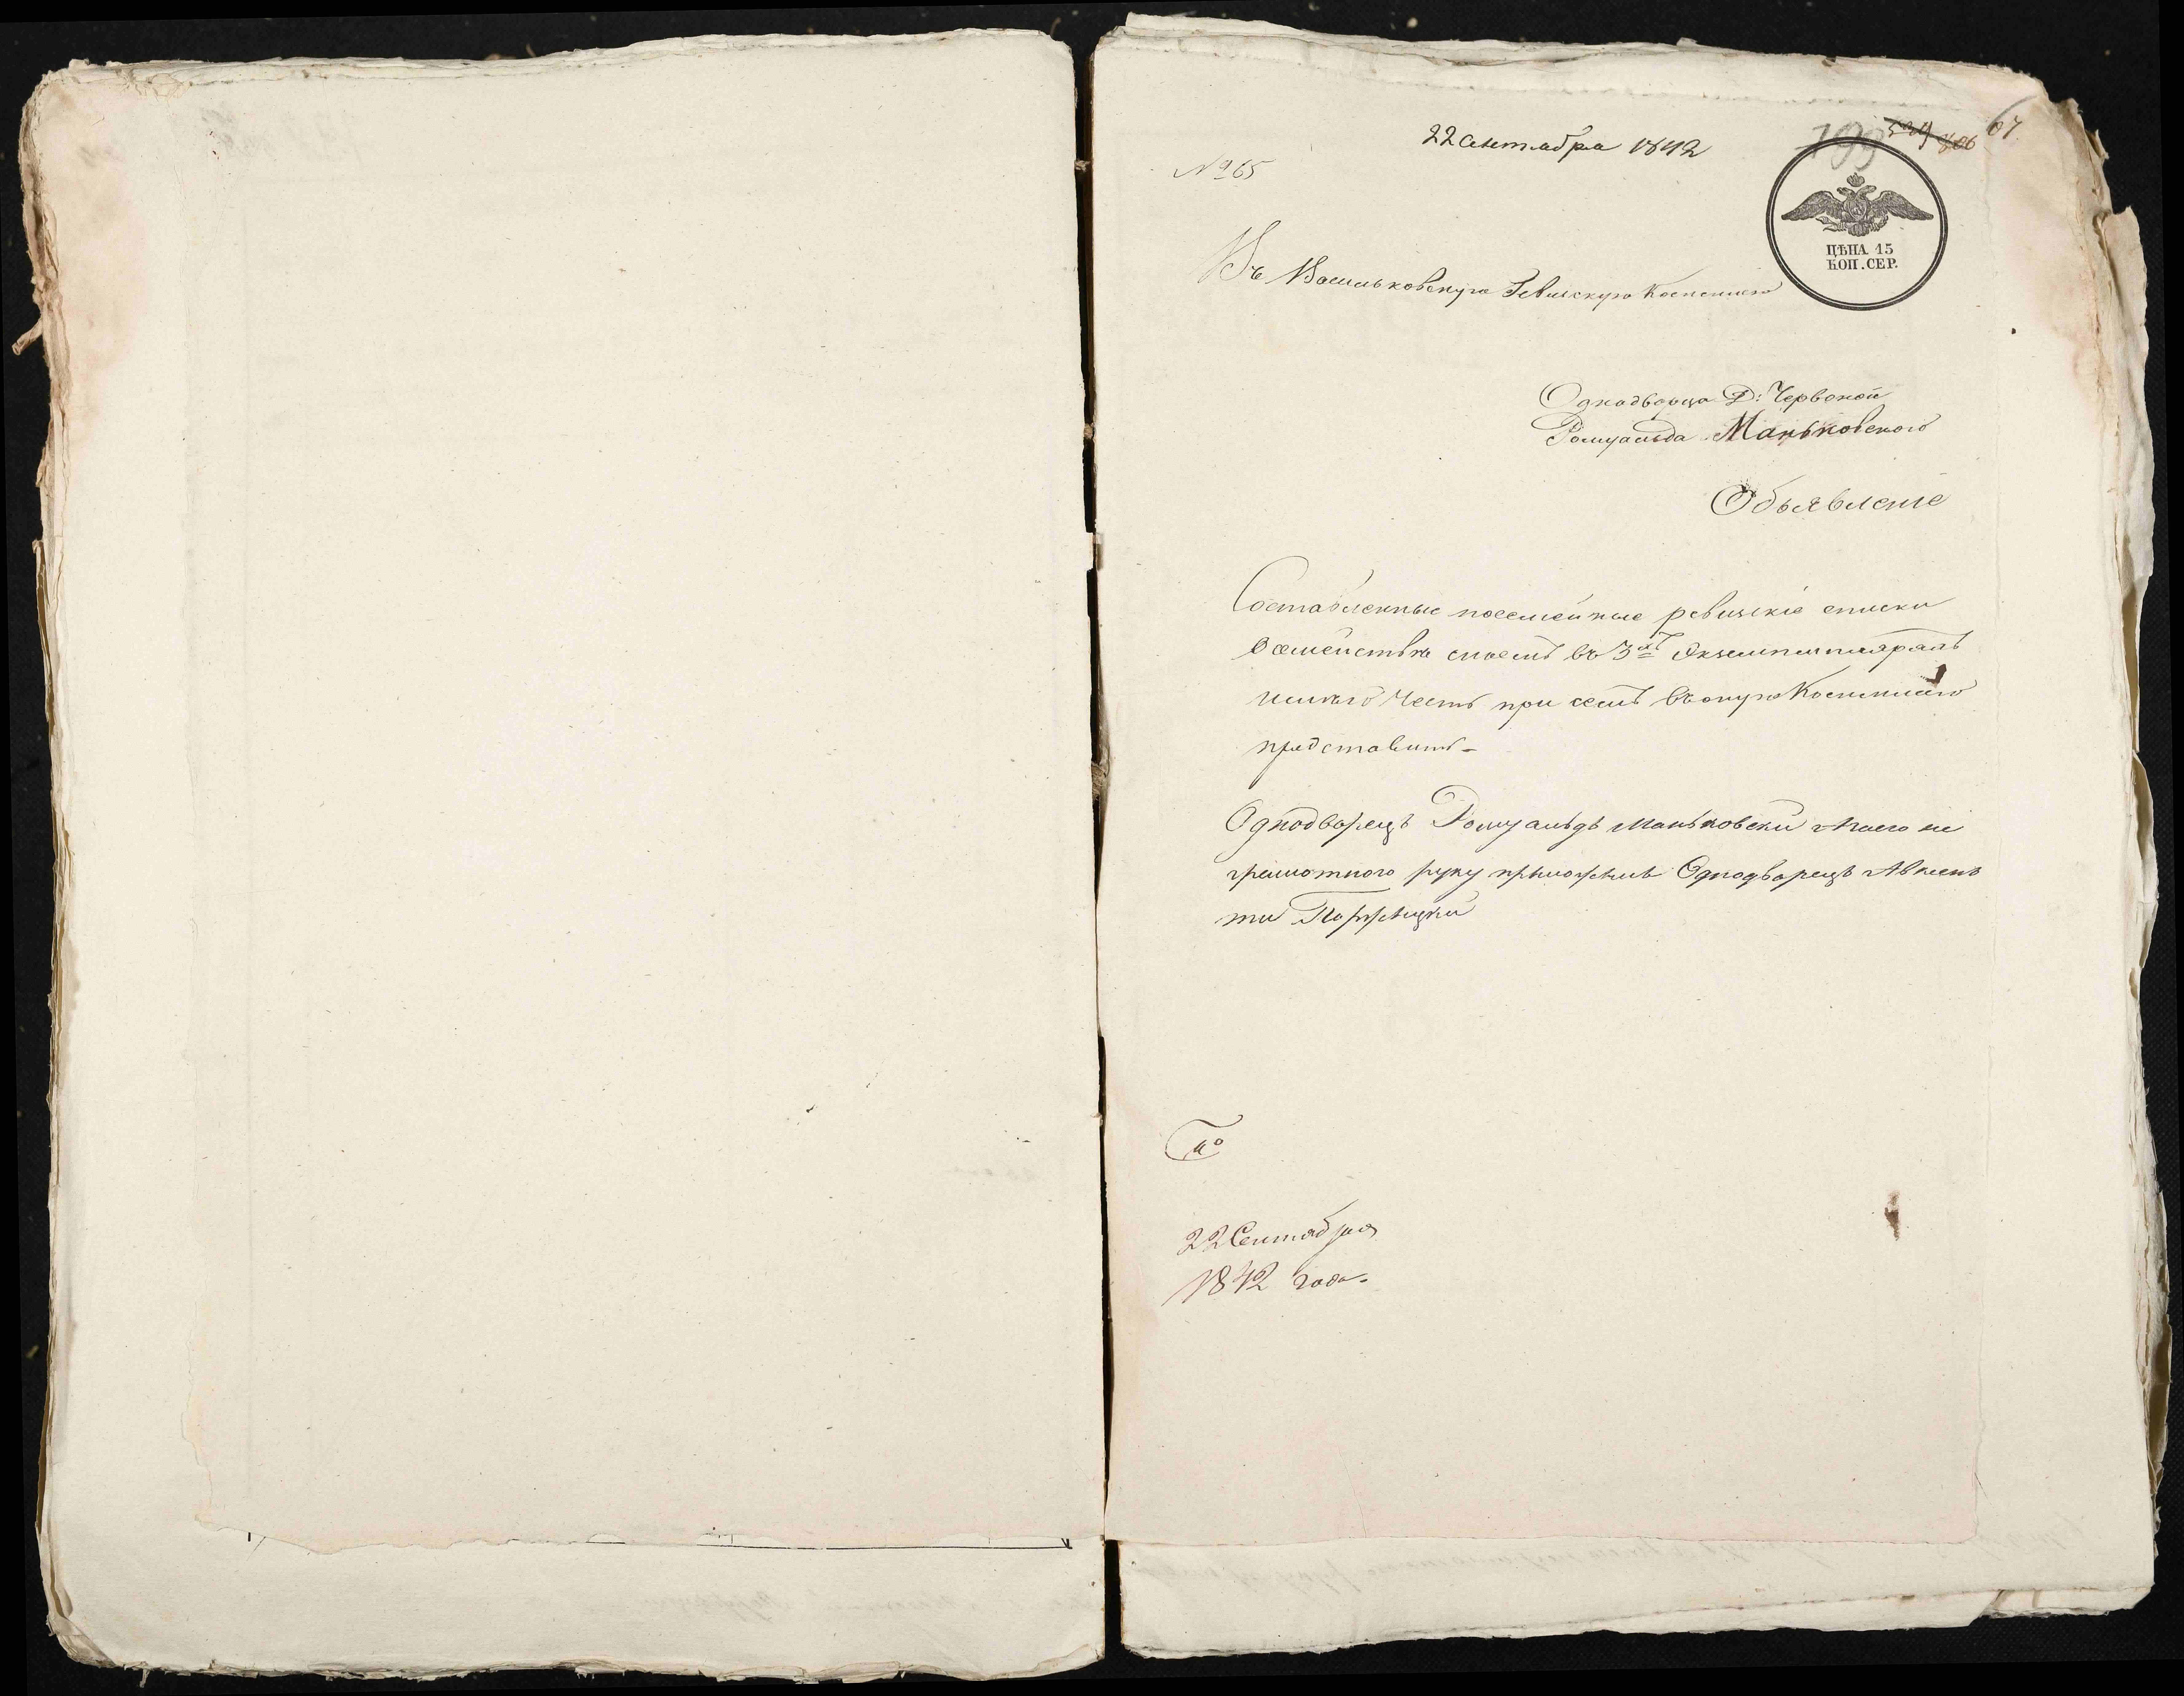 22 Сентября 1842
199 67
№ 65
ЦѢНА 15
КОП. СЕР.
Въ Васильковскую Ревизскую Коммисію
Однодворца Д: Червоной
Ромуальда Маньковского
Объявленіе
Составленные посемейные ревизкіе списки
о семействѣ моемъ въ 3хъ Экземплярахъ
имѣю честь при семъ въ оную Коммисію
представить
Однодворецъ Ромуальдъ Маньковски а наего не
грамотного руку приложилъ Однодворецъ Авкен
ти
22 Сентября
1842 года.